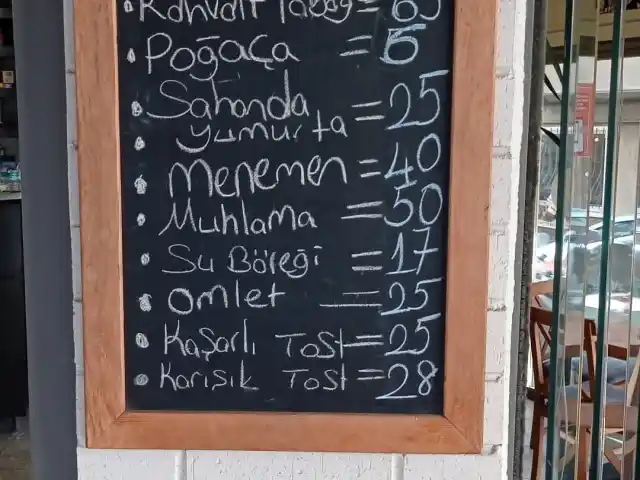 Kahvaltı Tabağı = 65
Poğaça = 6
Sahanda = 25
yumurta
Menemen = 40
Muhlama = 50
Su Böreği = 17
Omlet = 25
Kaşarlı Tost = 25
Karışık Tost = 28